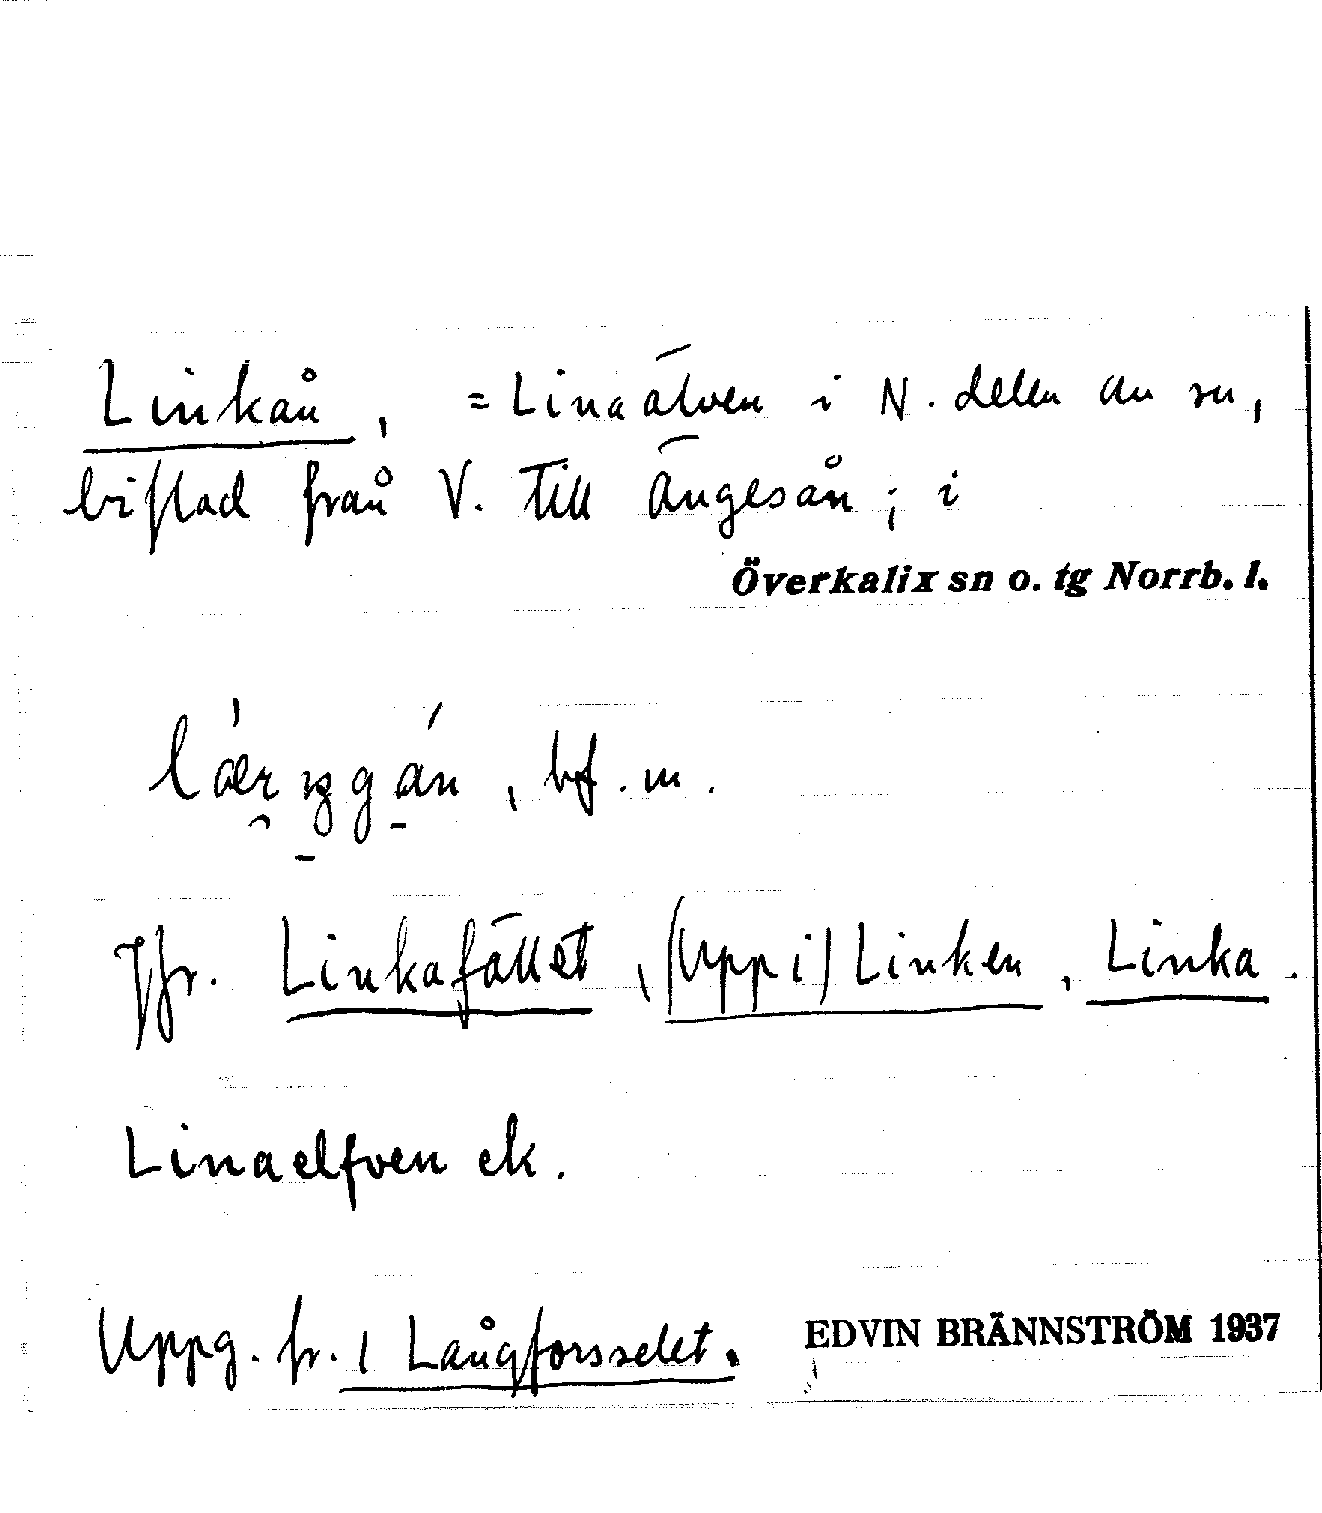 Linkån, = Linaälven i N. delen av sn,
biflod från V. till Ängesån; i
Överkalix sn o. tg Norrb. l.
bf. m.
Jfr. Linkafället, (Uppi) Linken, Linka.
Linaelfven ek.
Uppg. fr. 1 Långforsselet.
EDVIN BRÄNNSTRÖM 1937